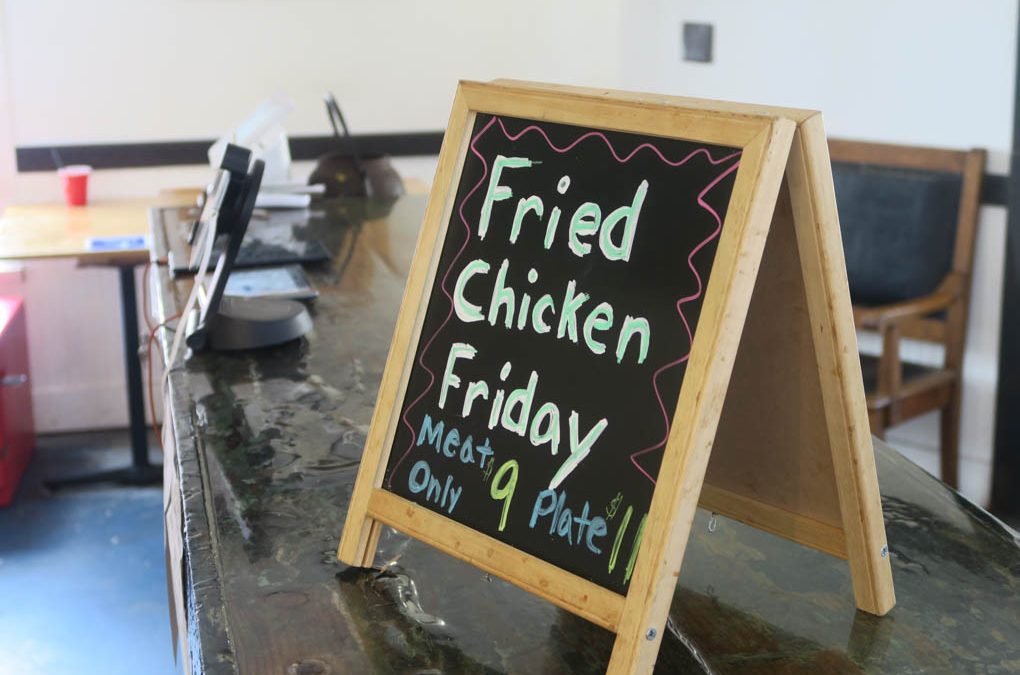 Fried
Chicken
Friday
Meat Only $9 Plate $11